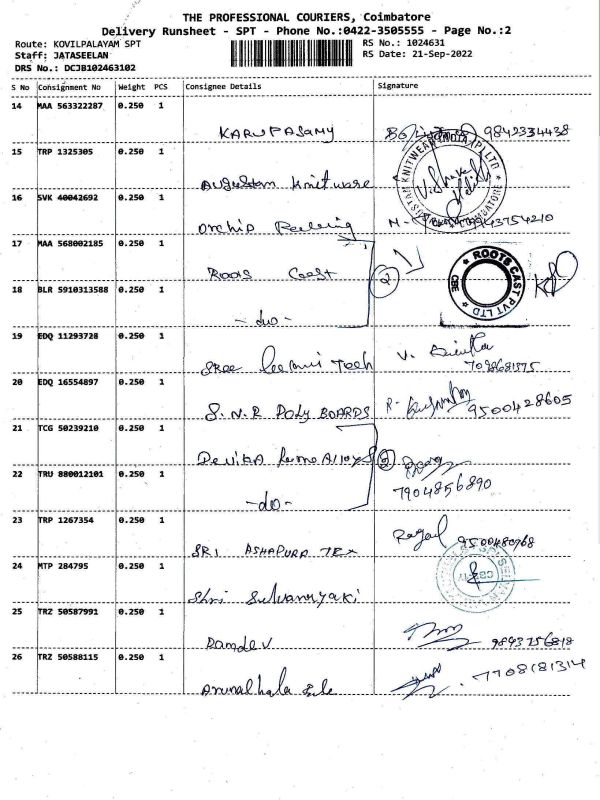 THE PROFESSIONAL COURIERS, Coimbatore
Delivery Runsheet - SPT - Phone No.:0422-3505555 - Page No.:2
Route: KOVILPALAYAM SPT RS No.: 1024631
Staff: JATASEELAN RS Date: 21-Sep-2022
DRS No.: DCJB102463102
S No Consignment No Weight PCS Consignee Details Signature
14 MAA 563322287 0.250 1
KARUPASAMY 9842334438
15 TRP 1325305 0.250 1
Augustan knitware
16 SVK 40042692 0.250 1
Orchid
17 MAA 568002185 0.250 1
Roos Cast 2 ROOTS CAST PVT LTD CBE
18 BLR 5910313588 0.250 1
-do-
19 EDQ 11293728 0.250 1
Sree Tech V.
20 EDQ 16554897 0.250 1
S.N.R Poly BOARDS R. 9500428605
21 TCG 50239210 0.250 1
Devika Alloys 2
22 TRU 880012101 0.250 1
-do- 7904856890
23 TRP 1267354 0.250 1
SRI ASHAPURA TEX 9500480968
24 MTP 284795 0.250 1
Shri Selvanayaki
25 TRZ 50587991 0.250 1
Ramdev 9843756818
26 TRZ 50588115 0.250 1
7708181314